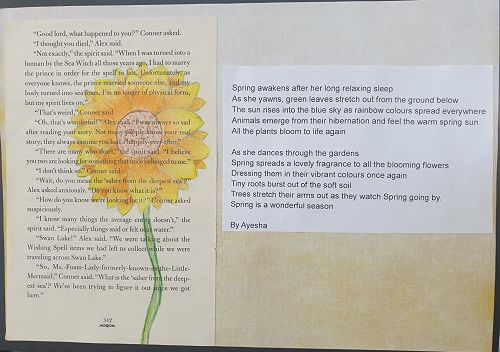 "Good lord, what happened to you?" Conner asked.
"I thought you died," Alex said.
"Not exactly," the spirit said. "When I was turned into a
human by the Sea Witch all those years ago, I had to marry
the prince in order for the spell to last. Unfortunately, as
everyone knows, the prince married someone else, and my
body turned into sea foam. I'm no longer of physical form,
but my spirit lives on."
"That's weird," Conner said.
"Oh, that's wonderful!" Alex said. "I was always so sad
after reading your story. Not many people know your real
story; they always assume you had a happily-ever-after."
"There are many who don't," the spirit said. "I believe
you two are looking for something that once belonged to me."
"I don't think so," Conner said.
"Wait, do you mean the 'saber from the deepest sea'?"
Alex asked anxiously. "You know what it is?"
"How do you know we're looking for it?" Conner asked
suspiciously.
"I know many things the average entity doesn't," the
spirit said. "Especially things said or felt near water."
"Swan Lake!" Alex said. "We were talking about the
Wishing Spell items we had left to collect while we were
traveling across Swan Lake."
"So, Ms.-Foam-Lady-formerly-known-as-the-Little-
Mermaid," Conner said. "What is the 'saber from the deep-
est sea'? We've been trying to figure it out since we got
here."
342
Spring awakens after her long relaxing sleep
As she yawns, green leaves stretch out from the ground below
The sun rises into the blue sky as rainbow colours spread everywhere
Animals emerge from their hibernation and feel the warm spring sun
All the plants bloom to life again
As she dances through the gardens
Spring spreads a lovely fragrance to all the blooming flowers
Dressing them in their vibrant colours once again
Tiny roots burst out of the soft soil
Trees stretch their arms out as they watch Spring going by
Spring is a wonderful season
By Ayesha